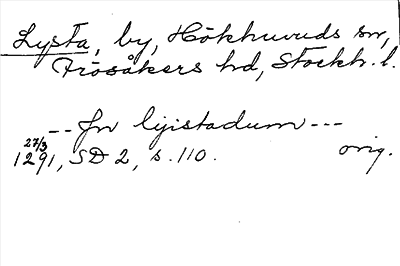 Lysta, by, Hökhuvuds sn,
Frösåkers hd, Stockh. l.
-- Jn lyistadum ---
27/3
1291, SD 2, s. 110. orig.